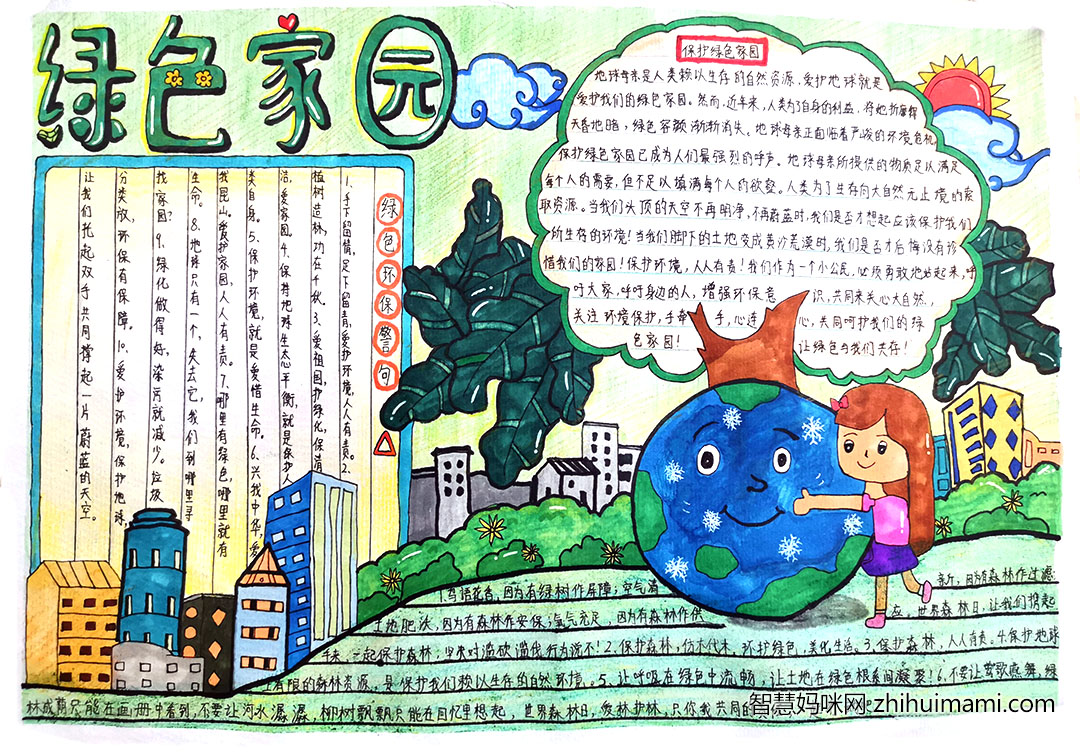 绿色家园
保护绿色家园
地球母亲是人类赖以生存的自然资源,爱护地球就是
爱护我们的绿色家园。然而,近年来,人类为了自身的利益,将她折磨得
天昏地暗,绿色容颜渐渐消失。地球母亲正面临着严峻的环境危机,
保护绿色家园已成为人们最强烈的呼声。地球母亲所提供的物质足以满足
每个人的需要,但不足以填满每个人的欲壑。人类为了生存向大自然无止境的索
取资源。当我们头顶的天空不再明净,不再蔚蓝时,我们是否才想起应该保护我们
所生存的环境!当我们脚下的土地变成黄沙荒漠时,我们是否才后悔没有珍
惜我们的家园!保护环境,人人有责!我们作为一个小公民,必须勇敢地站起来,呼
吁大家,呼吁身边的人,增强环保意识,共同来关心大自然,
关注环境保护,手牵手,心连心,共同呵护我们的绿
色家园!让绿色与我们共存!
绿色环保警句
1.手下留情,足下留青,爱护环境,人人有责。2.
植树造林,功在千秋。3.爱祖国,护绿化,保清
洁,爱家园。4.保持地球生态平衡,就是保护人
类自身。5.保护环境,就是爱惜生命。6.兴我中华,爱
我昆山。爱护家园,人人有责。7.哪里有绿色,哪里就有
生命。8.地球只有一个,失去它,我们到哪里寻
找家园?9.绿化做得好,染污就减少。垃圾
分类放,环保有保障。10.爱护环境,保护地球,
让我们托起双手共同撑起一片蔚蓝的天空。
1.鸟语花香,因为有绿树作屏障;空气清新,因为有森林作过滤;
土地肥沃,因为有森林作安保;氧气充足,因为有森林作供应。世界森林日,让我们携起
手来,一起保护森林;对滥砍滥伐行为说不!2.保护森林,勿伐木,环护绿色,美化生活。3.保护森林,人人有责。4.保护地球
上有限的森林资源,是保护我们赖以生存的自然环境。5.让呼吸在绿色中流畅,让土地在绿色根系间凝聚!6.不要让莺歌燕舞,绿
林成荫只能在画册中看到,不要让河水潺潺,柳树飘飘只能在回忆里想起,世界森林日,爱林护林,只你我共同的
智慧妈咪网 zhihuimami.com